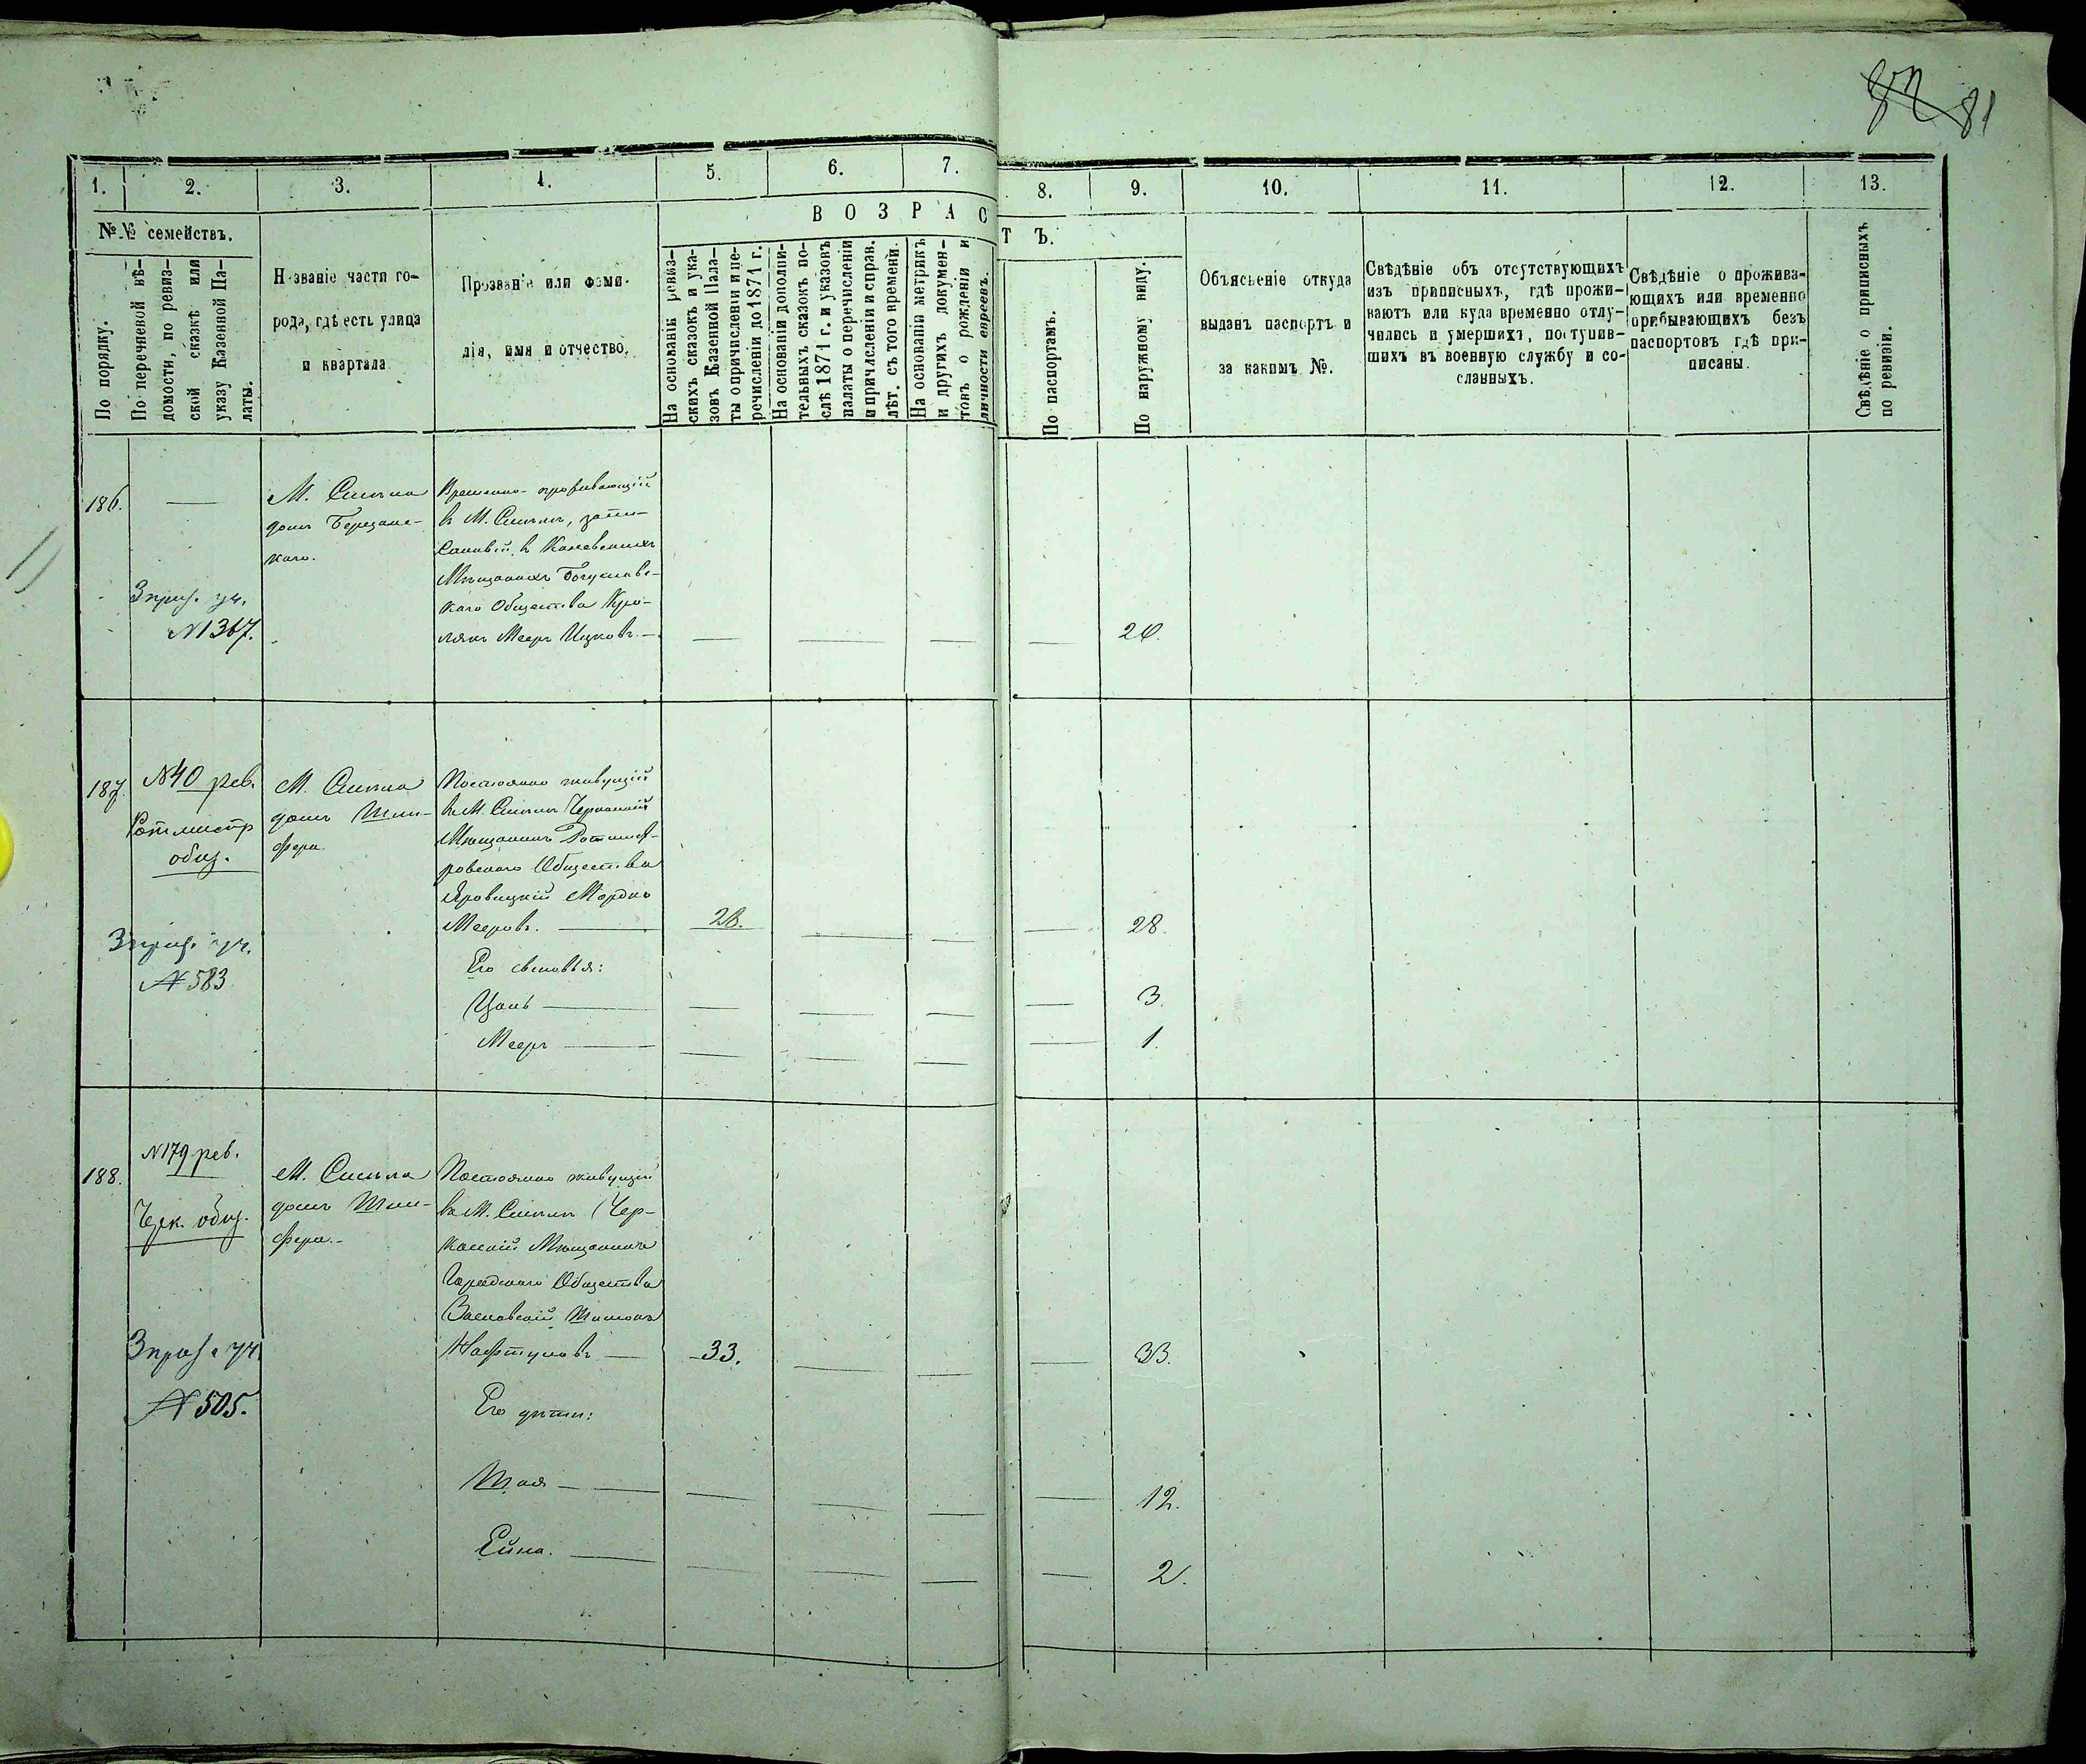 82 81
1. 2. 3. 4. 5. 6. 7. 8. 9. 10. 11. 12. 13.
№№ семействъ.
По порядку.
По перечневой вѣ-
домости, по ревиз-
ской сказкѣ или
указу Казенной Па-
латы.
Названіе части го-
рода, гдѣ есть улица
и квартала
Прозваніе или фами-
лія, имя и отчество.
ВОЗРАСТЪ.
На основаніи ревиз-
скихъ сказокъ и ука-
зовъ Казенной Пала-
ты о причисленіи и пе-
речисленіи до 1871 г.
На основаніи дополни-
тельныхъ сказокъ по-
слѣ 1871 г. и указовъ
палаты о перечисленіи
и причисленіи и справ.
лѣт. съ того времени.
На основаніи метрикъ
и другихъ докумен-
товъ о рожденіи и
личности евреевъ.
По паспортамъ.
По наружному виду.
Объясненіе откуда
выданъ паспортъ и
за какимъ №.
Свѣдѣніе объ отсутствующихъ
изъ приписныхъ, гдѣ прожи-
ваютъ или куда временно отлу-
чились и умершихъ, поступив-
шихъ въ военную службу и со-
сланныхъ.
Свѣдѣніе о прожива-
ющихъ или временно
прибывающихъ безъ
паспортовъ гдѣ при-
писаны.
Свѣдѣніе о приписныхъ
по ревизіи.
186.
3 приз. уч.
№ 367.
М. Смѣла
домъ Березанс-
каго.
Временно-проживающій
въ М. Смѣлѣ, запи-
санный въ Каневскихъ
Мѣщанахъ Богуславс-
каго Общества Кро-
лякъ Мееръ Ицковъ. 26.
187.
№40 рев.
Ротмистр
общ.
3 приз. уч.
№ 583
М. Смѣла
домъ
фера.
Постоянно живущій
въ М. Смѣлѣ Черкасскій
Мѣщанинъ Ротмист-
ровскаго Общества
Яровицкій Мордко
Мееровъ. 28. 28.
Его сыновья:
3.
Мееръ 1.
188.
№179 рев.
Черк. общ.
3 приз. уч.
№ 505.
М. Смѣла
домъ
фера.
Постоянно живущій
въ М. Смѣлѣ Чер-
касскій Мѣщанинъ
Городскаго Общества
Заславскій Шимонъ
Нафтуловъ 33. 33.
Его дѣти:
Шая 12.
2.